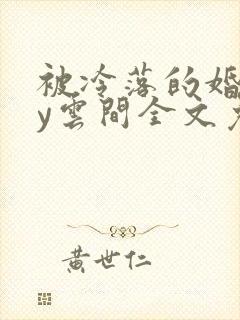 被冷落的婚
y雲間全文
黃世仁